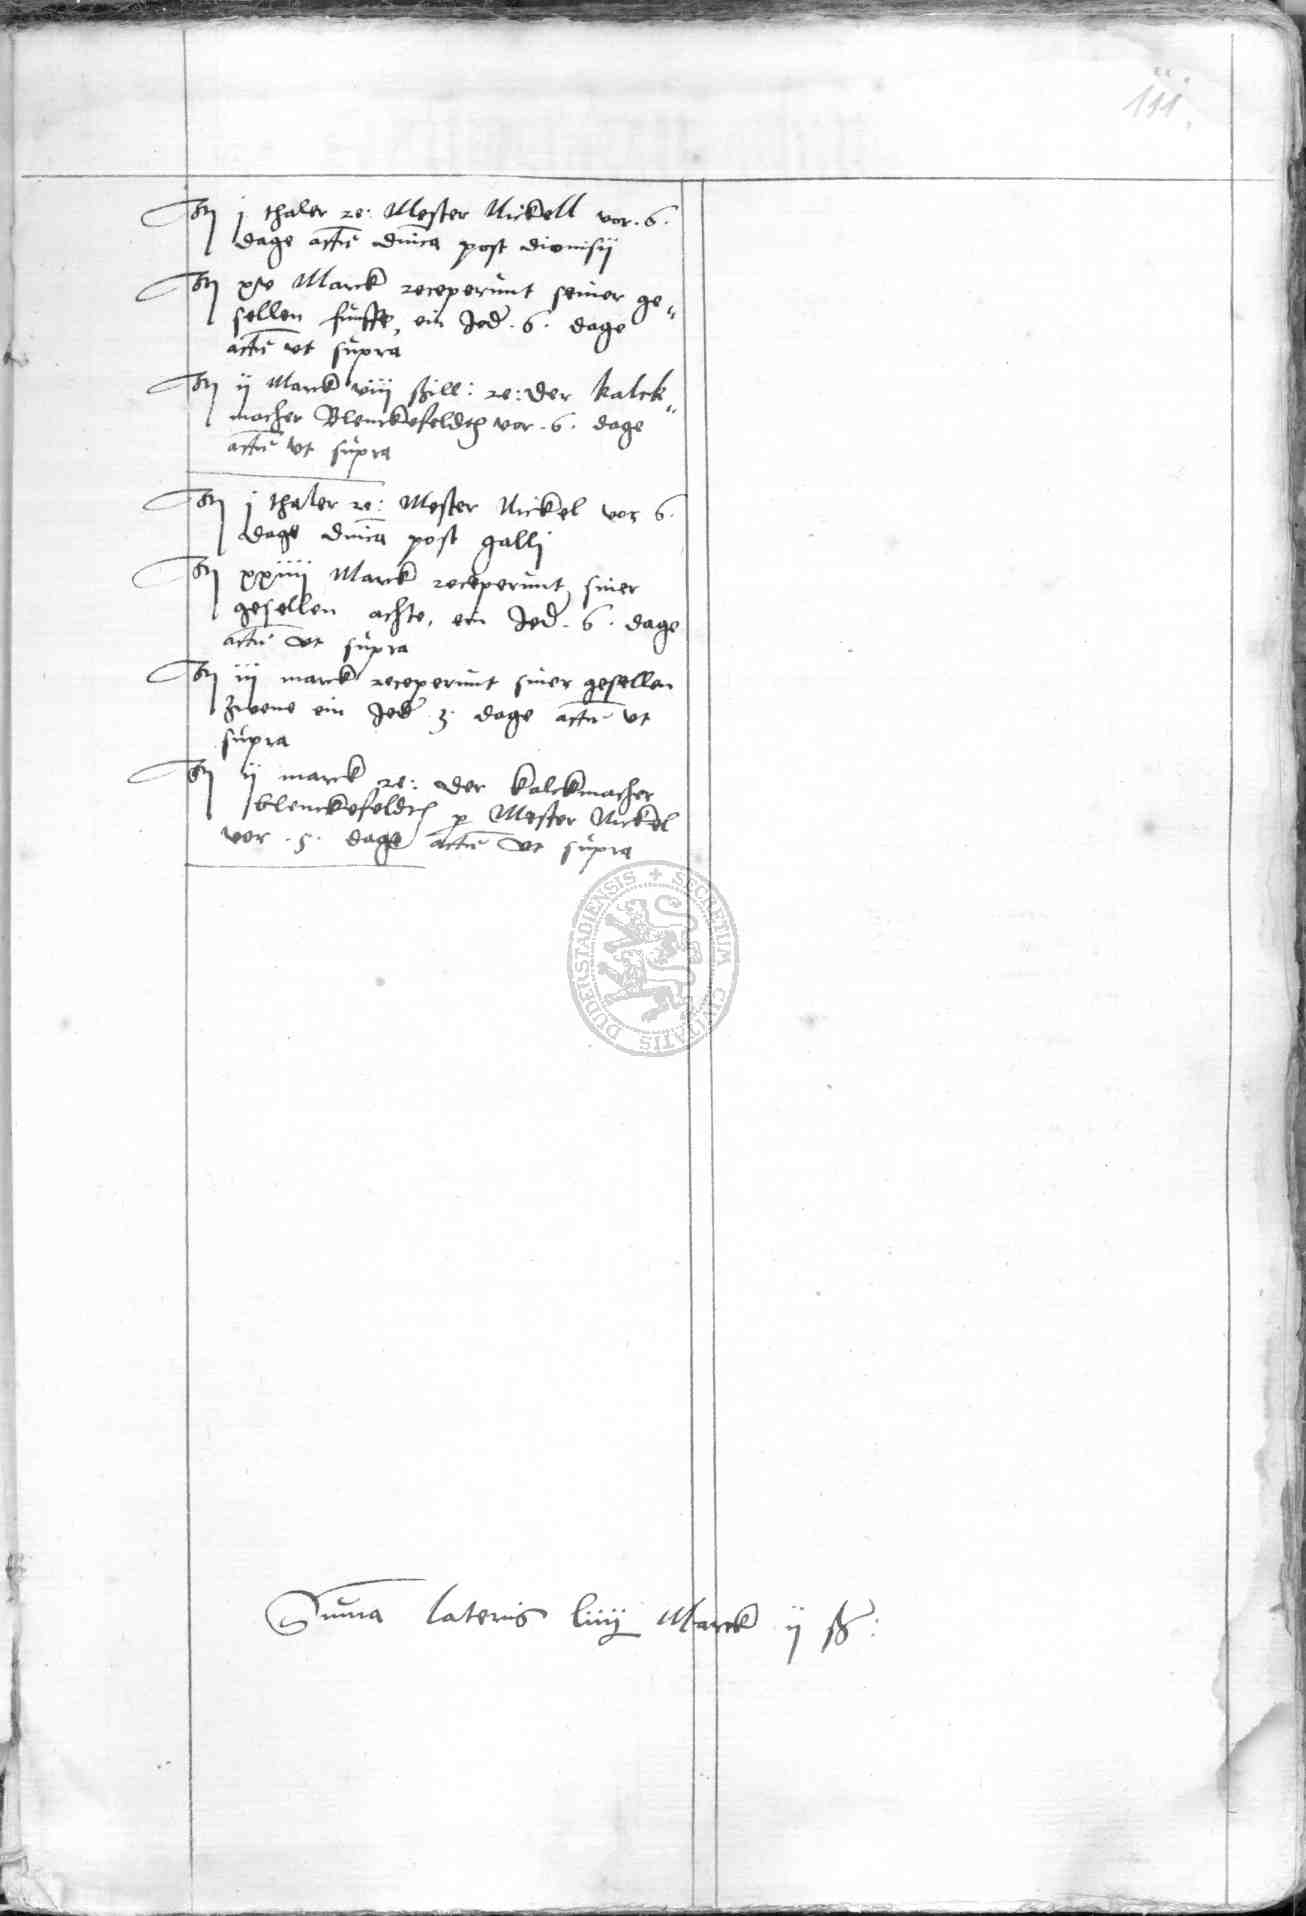 111.
It j thaler re: Mester Nickell vor . 6 .
dage actū dnīca post dionisij
It xv Marck receperunt seiner ge„
sellen funffe, ein Jed. 6 . dage
actū vt supra
It ij Marck viij ßill: re: der kalck„
macher Blenckefeldth vor . 6 . dage
actū vt supra
It j thaler re: Mester Nickel vor 6 .
dage dnīca post gallj
It xxiiij Marck receperunt siner
gesellen achte, ein Jed. 6 . dage
actū vt supra
It iij marck receperunt siner gesellen
zwene ein Jed. 3. dage actū vt
supra
It ij marck re: der kalckmacher
blenckefeldth p Mester Nickel
vor . 5 . dage actū vt supra
SECRETUM CIVITATIS DUDERSTADIENSIS
Suma lateris liiij Marck ij ß: